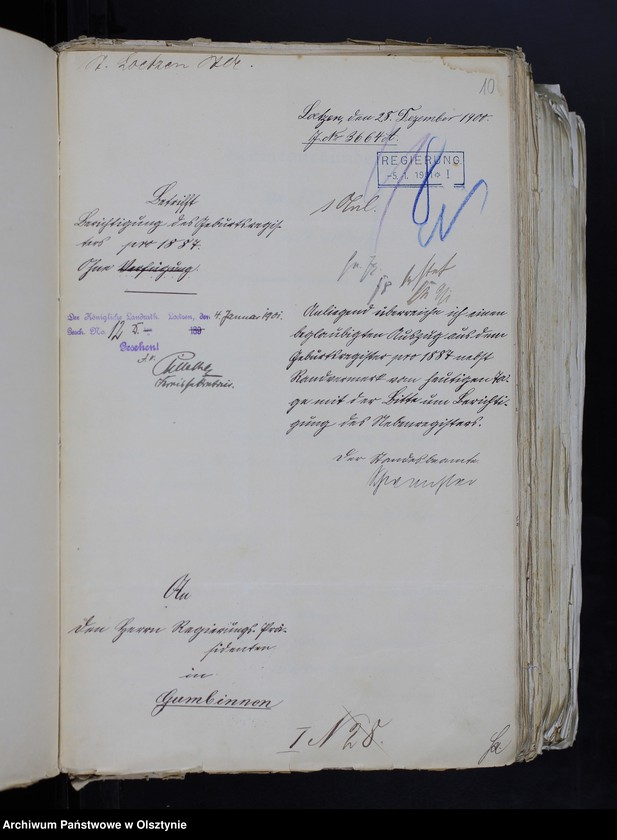 Loetzen
10
Loetzen, den 28. Dezember 1900.
J. Nr 3664 A.
REGIERUNG
-5.1.1901
1 Anl.
Betrifft
Berichtigung des Geburtsregis-
ters pro 1887.
Ohne Verfügung.
Der Königliche Landrath. Loetzen, den 4. Januar 1901.
Gesch. No. 12 I 189
Gesehen!
Kreissekretair.
Anliegend überreiche ich einen
beglaubigten Auszug aus dem
Geburtsregister pro 1887 nebst
Randvermerk vom heutigen Ta-
ge mit der Bitte um Berichti-
gung des Nebenregisters.
Der Standesbeamte
An
den Herrn Regierungs-Prä-
sidenten
in
Gumbinnen
I N 28.
Archiwum Państwowe w Olsztynie